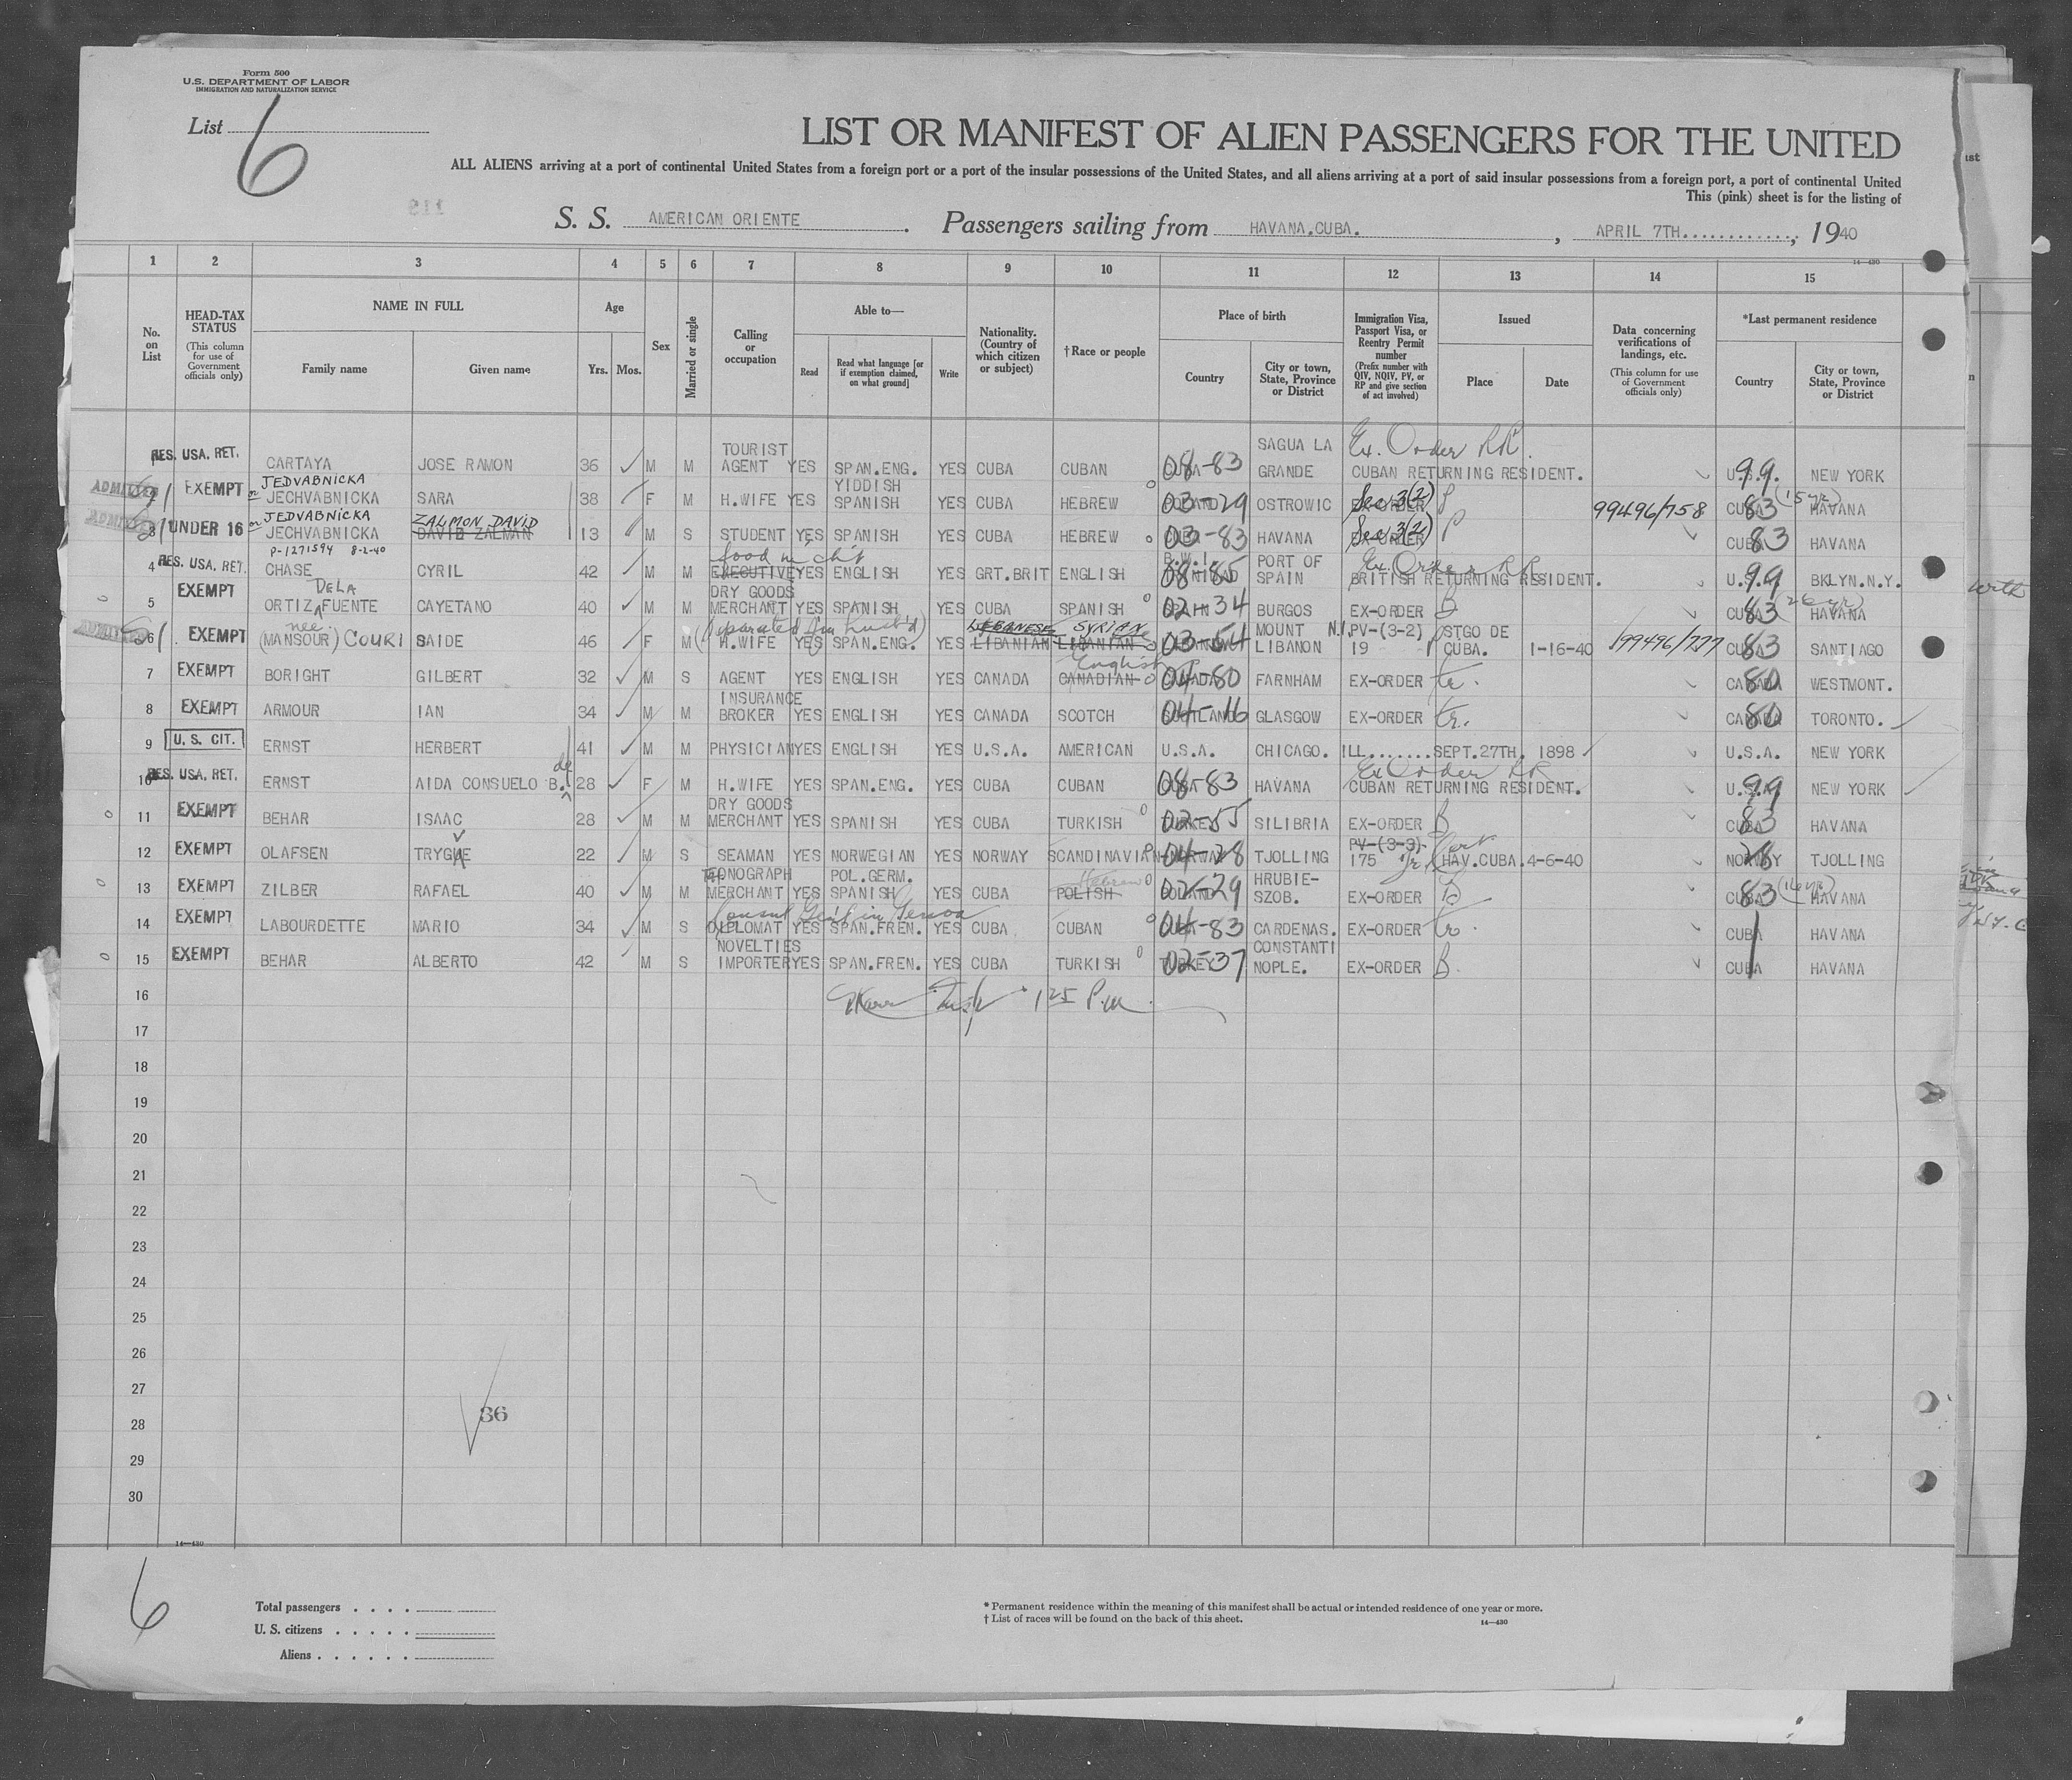 Form 500
U.S. DEPARTMENT OF LABOR
IMMIGRATION AND NATURALIZATION SERVICE
List 6
LIST OR MANIFEST OF ALIEN PASSENGERS FOR THE UNITED
ALL ALIENS arriving at a port of continental United States from a foreign port or a port of the insular possessions of the United States, and all aliens arriving at a port of said insular possessions from a foreign port, a port of continental United
This (pink) sheet is for the listing of
S. S. AMERICAN ORIENTE. Passengers sailing from HAVANA.CUBA. , APRIL 7TH............, 1940
14—430
1 2 3 4 5 6 7 8 9 10 11 12 13 14 15
No. on List
HEAD-TAX STATUS (This column for use of Government officials only)
NAME IN FULL Family name Given name
Age Yrs. Mos.
Sex
Married or single
Calling or occupation
Able to— Read Read what language [or if exemption claimed, on what ground] Write
Nationality. (Country of which citizen or subject)
†Race or people
Place of birth Country City or town, State, Province or District
Immigration Visa, Passport Visa, or Reentry Permit number (Prefix number with QIV, NQIV, PV, or RP and give section of act involved)
Issued Place Date
Data concerning verifications of landings, etc. (This column for use of Government officials only)
*Last permanent residence Country City or town, State, Province or District
TOURIST SAGUA LA Ex. Order RR.
RES. USA. RET. CARTAYA JOSE RAMON 36 M M AGENT YES SPAN.ENG. YES CUBA CUBAN 08-83 GRANDE CUBAN RETURNING RESIDENT. U.S. 99. NEW YORK
JEDVABNICKA YIDDISH Sec 3(2) P (15 yr)
ADMITTED EXEMPT or JECHVABNICKA SARA 38 F M H.WIFE YES SPANISH YES CUBA HEBREW 03-29 OSTROWIC EX-ORDER 99496/758 CUBA 83 HAVANA
JEDVABNICKA ZALMON DAVID Sec 3(2) P
ADMITTED 3 UNDER 16 or JECHVABNICKA DAVID ZALMAN 13 M S STUDENT YES SPANISH YES CUBA HEBREW 03-83 HAVANA EX-ORDER CUBA 83 HAVANA
P-1271594 8-2-40 B.W.I. PORT OF Ex. Order RR
4 RES. USA. RET. CHASE CYRIL 42 M M EXECUTIVE YES ENGLISH YES GRT.BRIT ENGLISH 08-85 SPAIN BRITISH RETURNING RESIDENT. U.S. 99 BKLYN.N.Y.
DE LA DRY GOODS
5 EXEMPT ORTIZ FUENTE CAYETANO 40 M M MERCHANT YES SPANISH YES CUBA SPANISH 02-34 BURGOS EX-ORDER B CUBA 83 HAVANA
nee (Separated from husb'd) LEBANESE SYRIAN MOUNT N.I.PV-(3-2) STGO DE
ADMITTED 6 EXEMPT (MANSOUR) COURI SAIDE 46 F M H.WIFE YES SPAN.ENG. YES LIBANIAN LIBANIAN 03-54 LIBANON 19 P CUBA. 1-16-40 99496/777 CUBA 83 SANTIAGO
English
7 EXEMPT BORIGHT GILBERT 32 M S AGENT YES ENGLISH YES CANADA CANADIAN 04-80 FARNHAM EX-ORDER tr. CANADA 80 WESTMONT.
INSURANCE
8 EXEMPT ARMOUR IAN 34 M M BROKER YES ENGLISH YES CANADA SCOTCH 04-16 GLASGOW EX-ORDER tr. CANADA 80 TORONTO.
9 U. S. CIT. ERNST HERBERT 41 M M PHYSICIAN YES ENGLISH YES U.S.A. AMERICAN U.S.A. CHICAGO. ILL.......SEPT.27TH. 1898 U.S.A. NEW YORK
de Ex Order RR
10 RES. USA. RET. ERNST AIDA CONSUELO B. 28 F M H.WIFE YES SPAN.ENG. YES CUBA CUBAN 08-83 HAVANA CUBAN RETURNING RESIDENT. U.S.A. 99 NEW YORK
DRY GOODS
11 EXEMPT BEHAR ISAAC 28 M M MERCHANT YES SPANISH YES CUBA TURKISH 02-55 SILIBRIA EX-ORDER B CUBA 83 HAVANA
V PV-(3-3)
12 EXEMPT OLAFSEN TRYGUE 22 M S SEAMAN YES NORWEGIAN YES NORWAY SCANDINAVIAN 04-28 NORWAY TJOLLING 175 Tr HAV.CUBA.4-6-40 NORWAY 28 TJOLLING
MONOGRAPH POL.GERM. Hebrew HRUBIE-
13 EXEMPT ZILBER RAFAEL 40 M M MERCHANT YES SPANISH YES CUBA POLISH 02-29 SZOB. EX-ORDER B CUBA 83 (16 yr) HAVANA
Consul Gen'l in Genoa
14 EXEMPT LABOURDETTE MARIO 34 M S DIPLOMAT YES SPAN.FREN. YES CUBA CUBAN 04-83 CARDENAS. EX-ORDER tr. CUBA HAVANA
NOVELTIES CONSTANTI
15 EXEMPT BEHAR ALBERTO 42 M S IMPORTER YES SPAN.FREN. YES CUBA TURKISH 02-37 TURKEY NOPLE. EX-ORDER B. CUBA HAVANA
16 1 25 P.M.
17
18
19
20
21
22
23
24
25
26
27
28 36
29
30
14—430
6
Total passengers . . . .
U. S. citizens . . . . .
Aliens . . . . . .
* Permanent residence within the meaning of this manifest shall be actual or intended residence of one year or more.
† List of races will be found on the back of this sheet.
14—430